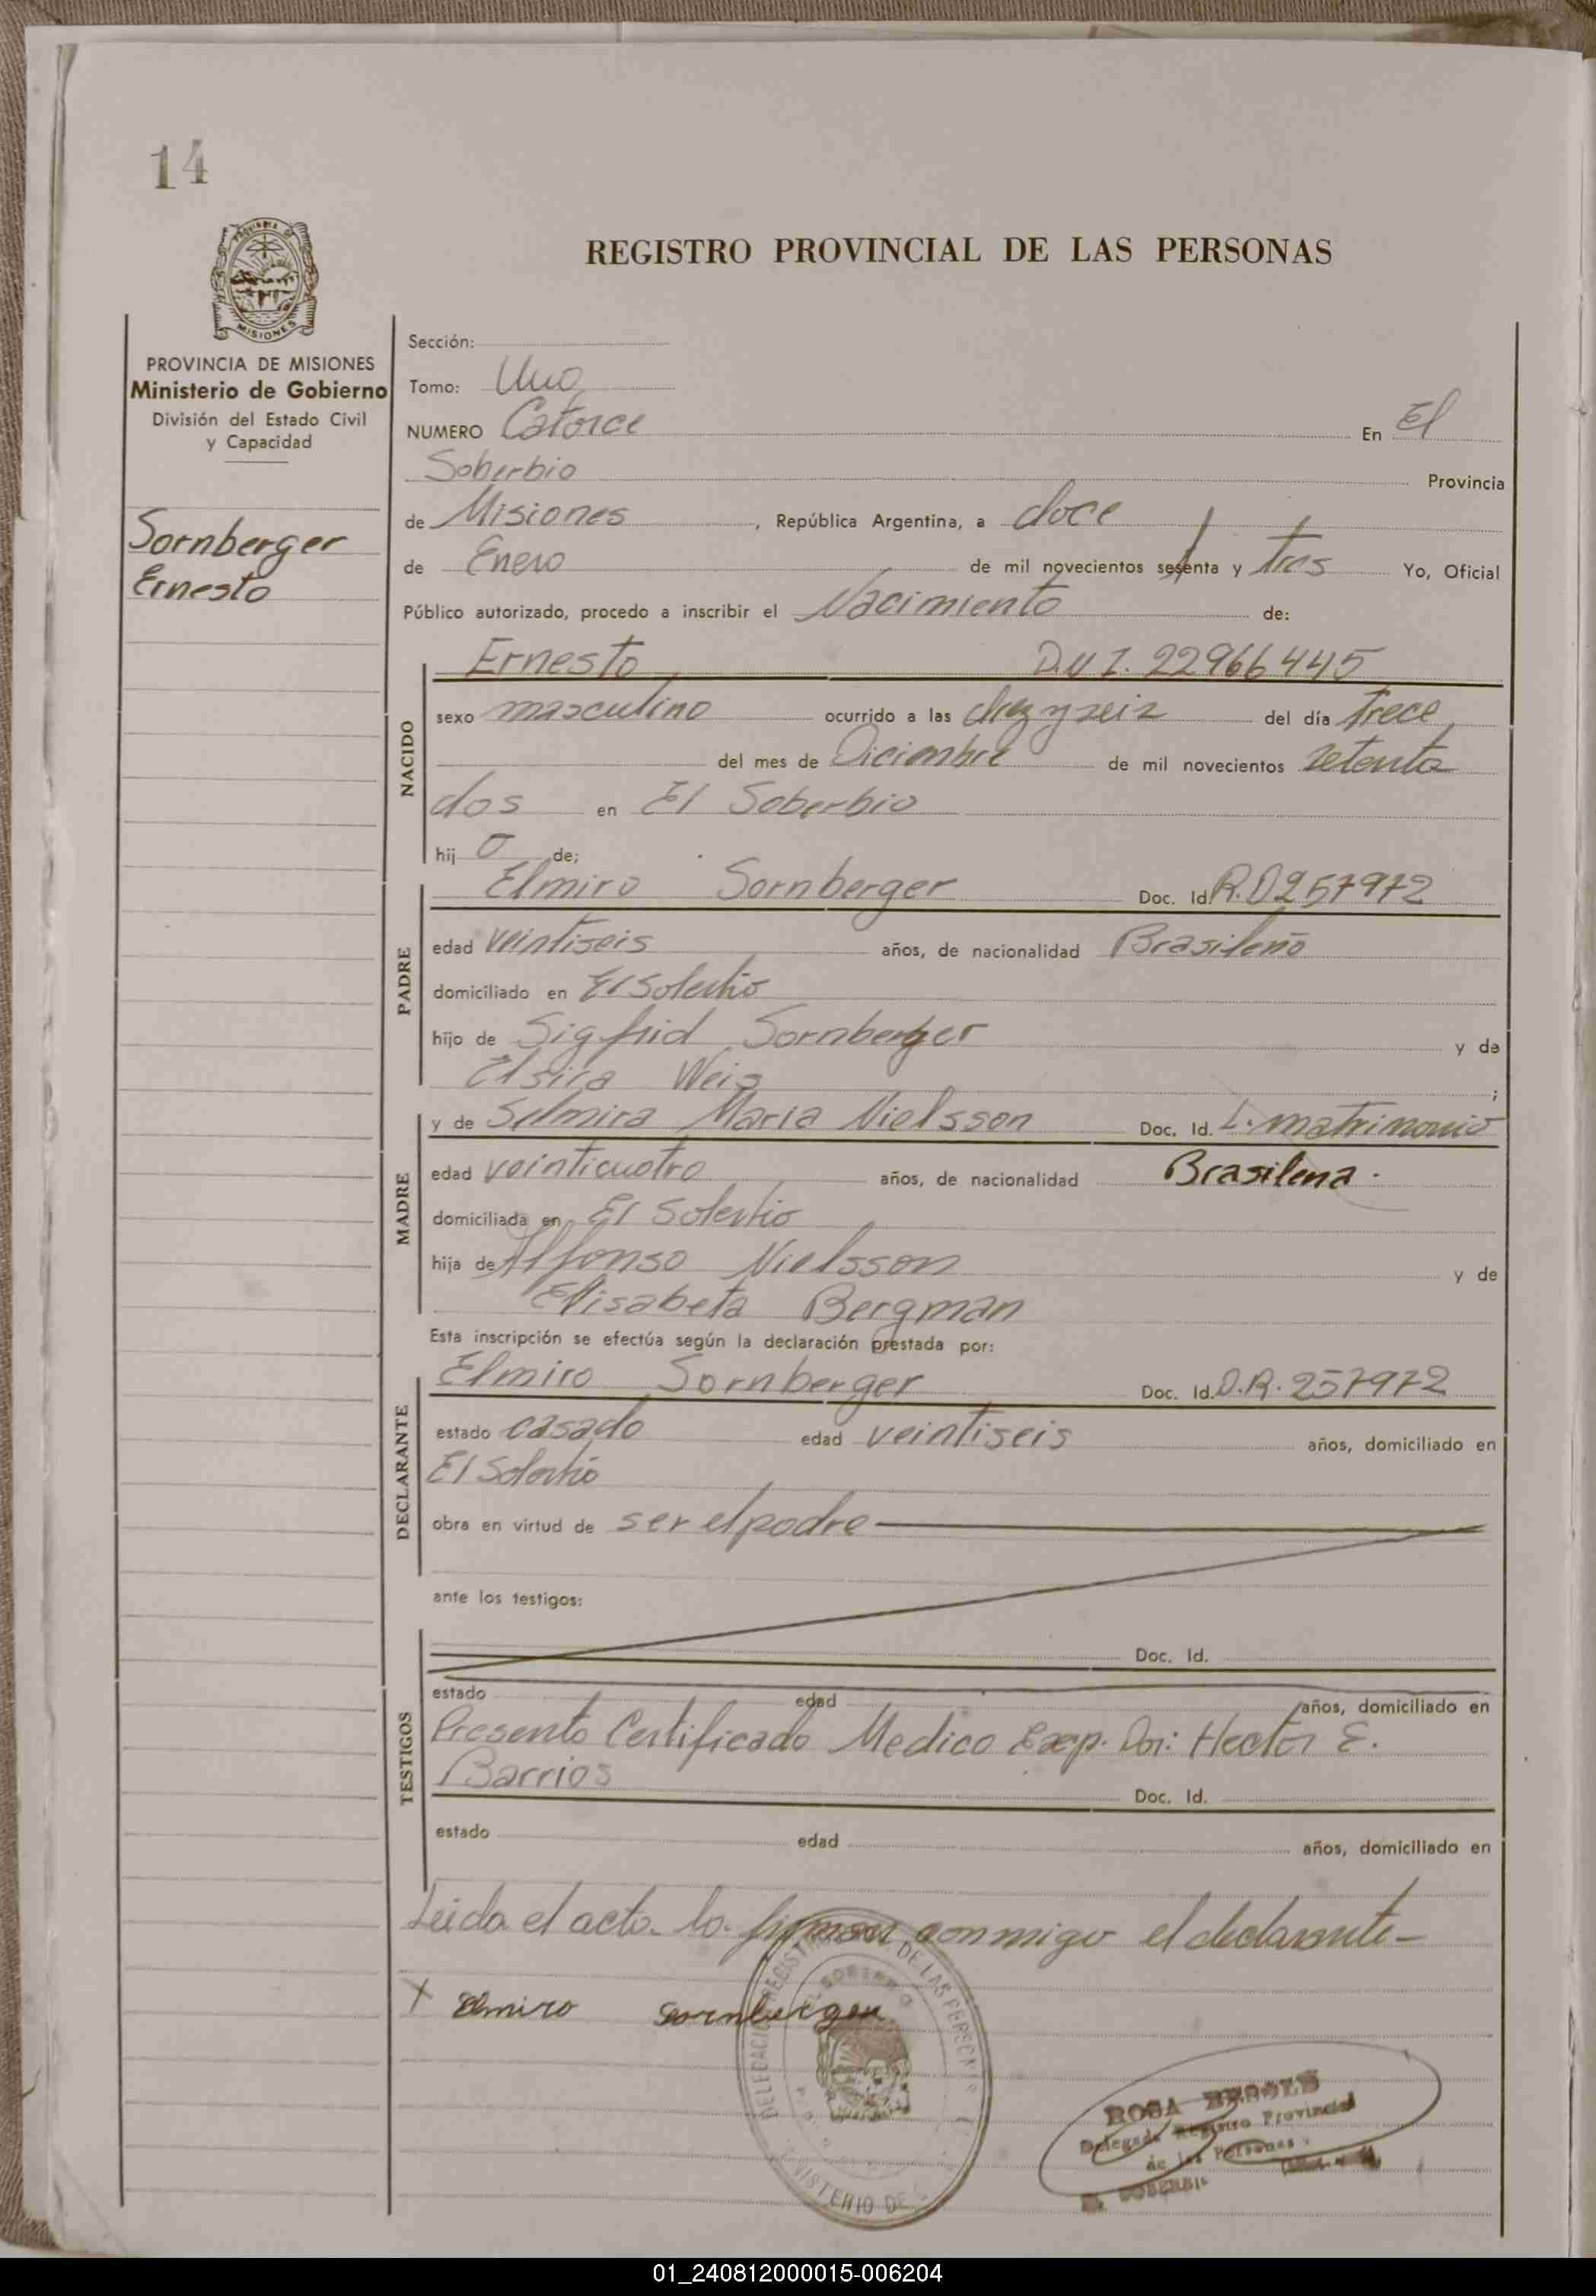 14
REGISTRO PROVINCIAL DE LAS PERSONAS
MISIONES
PROVINCIA DE MISIONES
Ministerio de Gobierno
División del Estado Civil
y Capacidad
Sornberger
Ernesto
Sección:
Tomo: Uno
NUMERO Catorce En El
Soberbio Provincia
de Misiones , República Argentina, a doce
de Enero de mil novecientos sesenta y tres Yo, Oficial
Público autorizado, procedo a inscribir el Nacimiento de:
NACIDO
Ernesto D.N.I. 22966445
sexo masculino ocurrido a las diez y seis del día Trece
del mes de Diciembre de mil novecientos setenta
dos en El Soberbio
hij o de;
PADRE
Elmiro Sornberger Doc. Id. R.D 257972
edad veintiseis años, de nacionalidad Brasileño
domiciliado en El Soberbio
hijo de Sigfrid Sornberger y de
Elsira Weis ;
MADRE
y de Selmira Maria Nielsson Doc. Id. L. matrimonio
edad veinticuatro años, de nacionalidad Brasilena.
domiciliada en El Soberbio
hija de Alfonso Nielsson y de
Elisabeta Bergman
Esta inscripción se efectúa según la declaración prestada por:
DECLARANTE
Elmiro Sornberger Doc. Id. D.R. 257972
estado casado edad veintiseis años, domiciliado en
El Soberbio
obra en virtud de ser el padre
ante los testigos:
TESTIGOS
Doc. Id.
estado edad años, domiciliado en
Presento Certificado Medico Exp. Por: Hector E.
Barrios Doc. Id.
estado edad años, domiciliado en
Leida el acta. la. firman conmigo el declarante-
X Elmiro Sornberger
REGISTRO DE LAS PERSONAS
ROSA
Delegada Registro Provincial
de las Personas
EL SOBERBIO
01_240812000015-006204